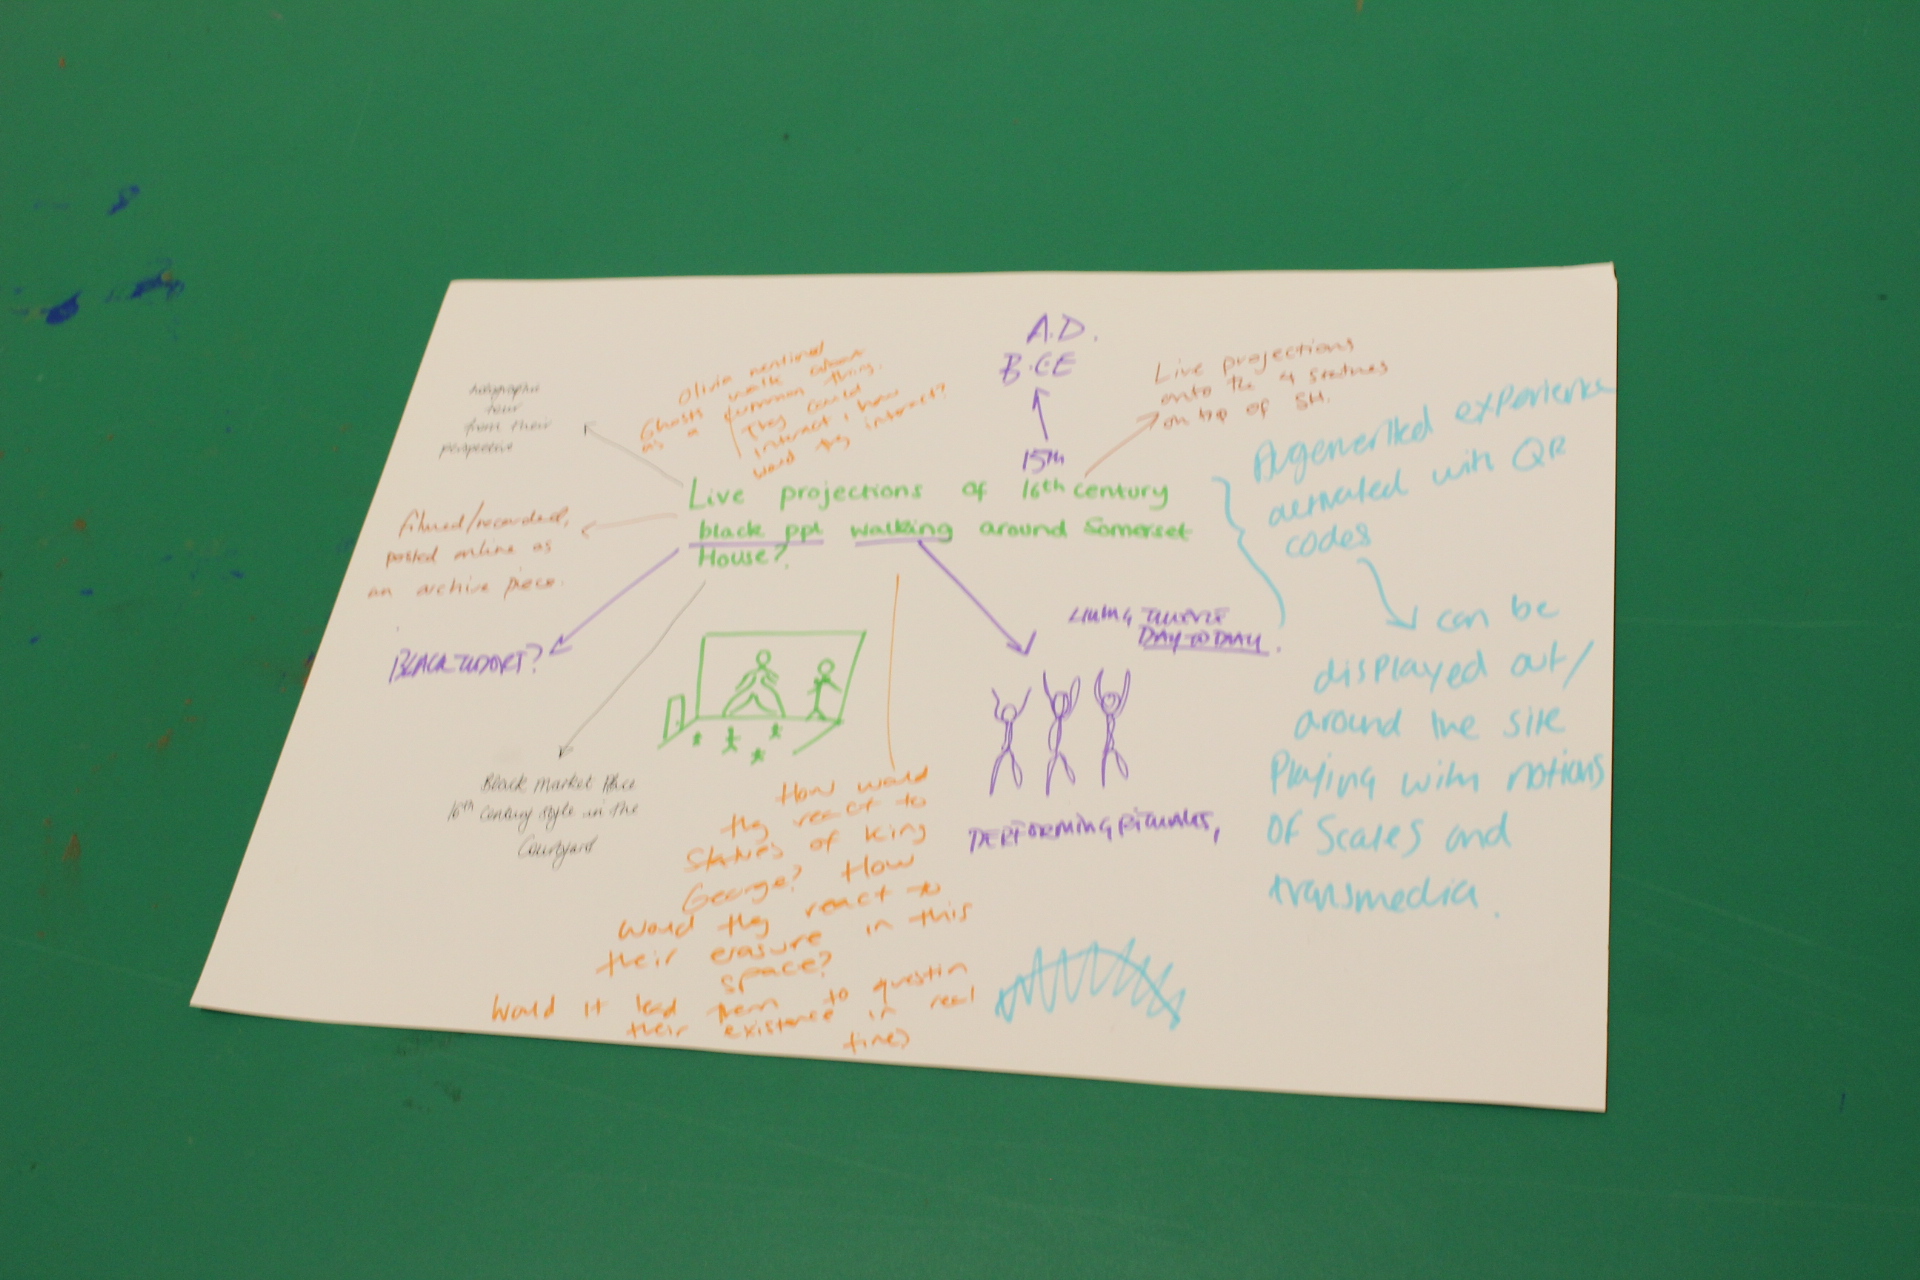 A.D.
B.CE
15th
Live projections
onto the 4 statues
on top of SH.
Olivia mentioned
Ghosts walk
as a common thing.
They could
interact & how
would they interact?
holographic
tour
from their
perspective
Live projections of 16th century
black ppl walking around Somerset
House?
filmed/recorded,
posted online as
an archive piece.
BLACK TUDORS?
Black Market Place
16th Century style in the
Courtyard
LIVING THERE
DAY TO DAY.
PERFORMING RITUALS,
How would
they react to
statues of King
George? How
would they react to
their erasure in this
space?
Would it lead them to question
their existence in real
time?
Augemented experience
activated with QR
codes
can be
displayed out/
around the site
Playing with notions
Of Scales and
transmedia.